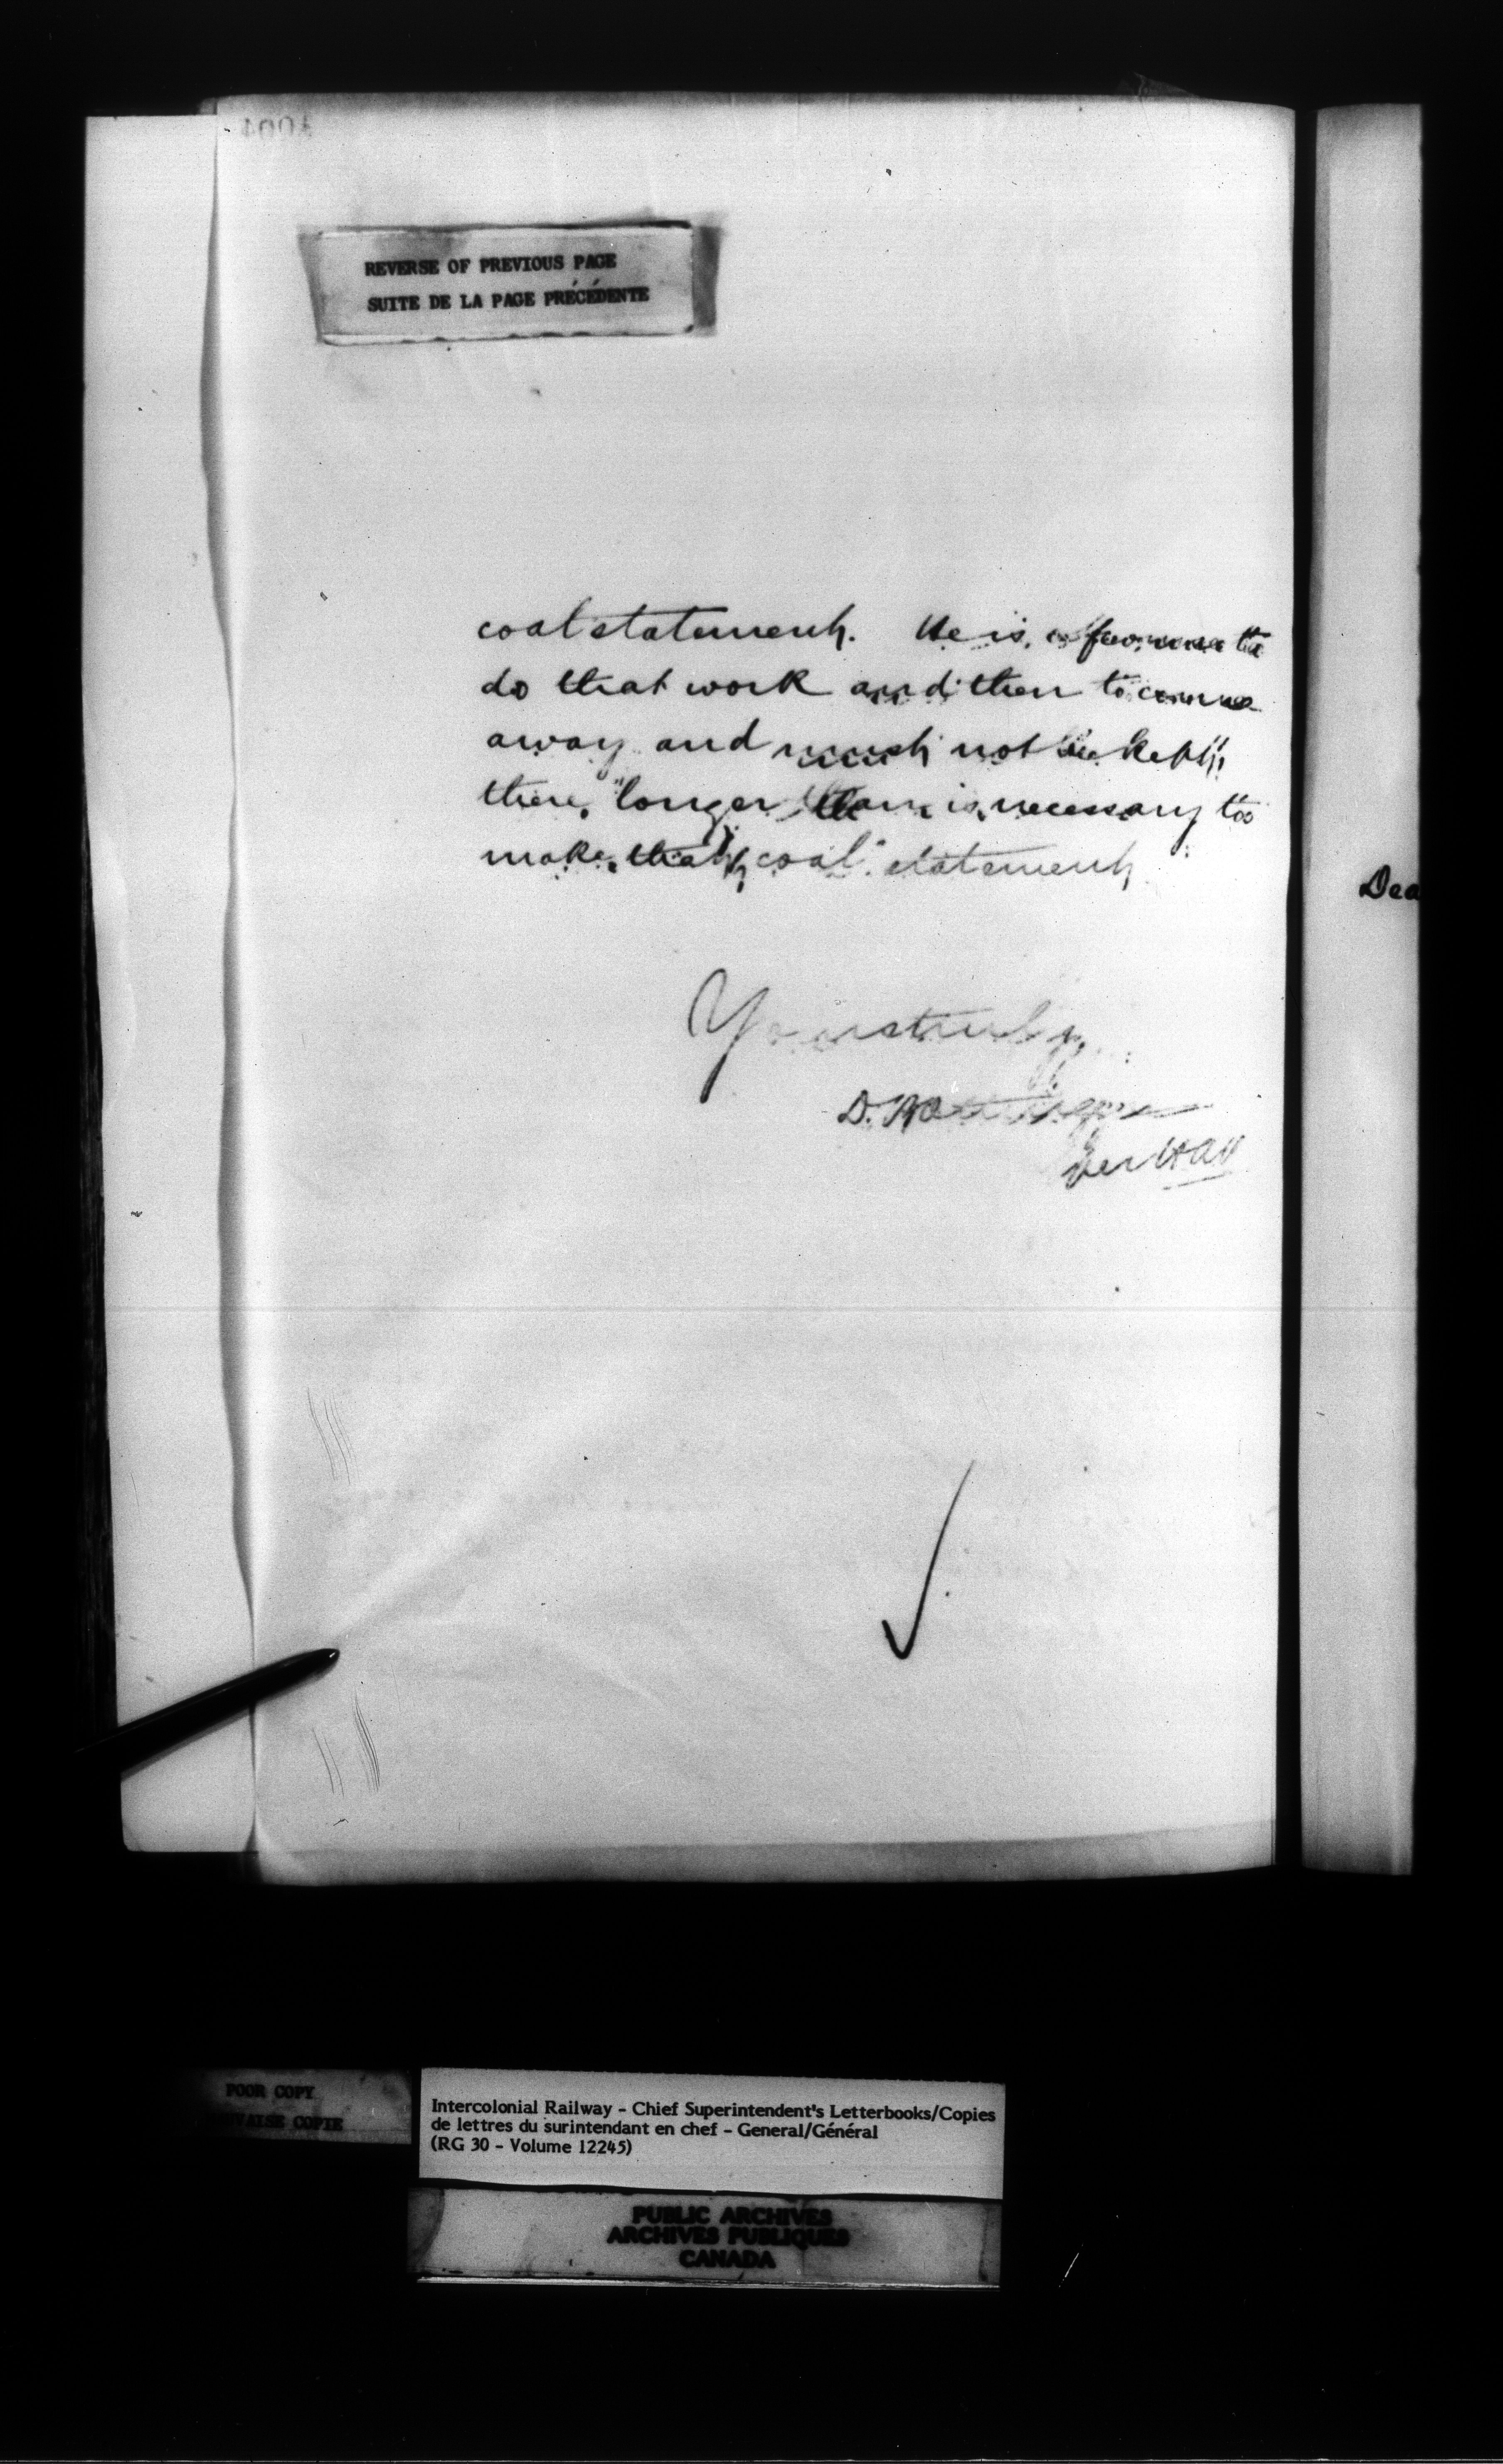 REVERSE OF PREVIOUS PAGE
SUITE DE LA PAGE PRÉCÉDENTE
coal statement. He is to
do that work and then to come
away and must not be kept
there longer than is necessary to
make that coal statement
Yours truly,
D. Pottinger
per
Dea
POOR COPY
MAUVAISE COPIE
Intercolonial Railway - Chief Superintendent's Letterbooks/Copies
de lettres du surintendant en chef - General/Général
(RG 30 - Volume 12245)
PUBLIC ARCHIVES
ARCHIVES PUBLIQUES
CANADA